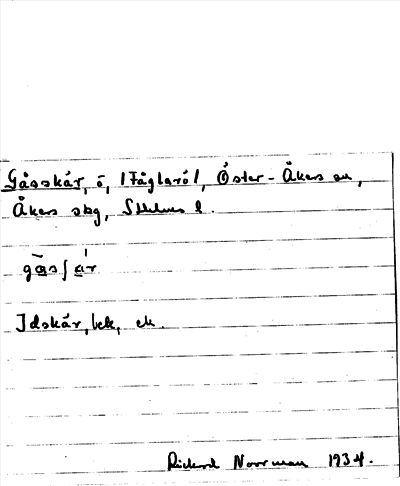 Gåsskär, ö, (Fåglarö), Öster-Åkers sn,
Åkers skg, Sthlms l.
gåsʃär
Idskär, bek, ek.
Rickard Norrman 1934.